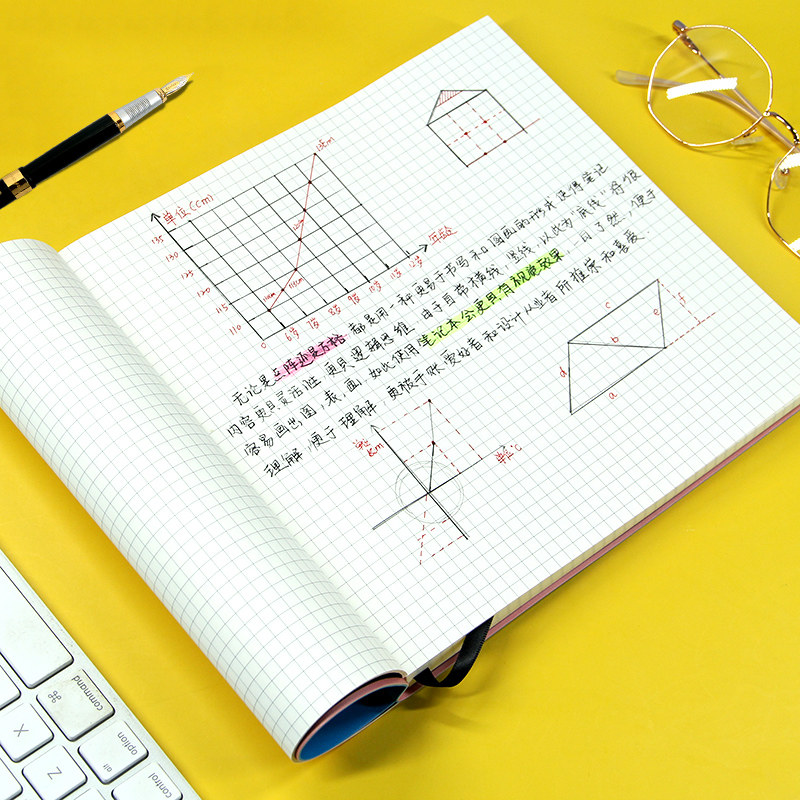 单位(Ccm)
135cm
135
130
125
120
115
110
0 6岁 7岁 8岁 9岁 10岁 11岁 12岁
年龄
无论是点阵还是方格,都是用一种更易于书写和画画的形式使得笔记
内容更具灵活性,更具逻辑思维.由于自带横线,竖线,以此为"底线"将很
容易画出图,表,画,如此使用笔记本会更具有视觉效果,一目了然,便于
理解,便于理解,更被手账爱好者和设计从业者所推崇和喜爱.
c
b
e
f
d
a
km
单位℃
command
⌘
option
alt
control
X
Z